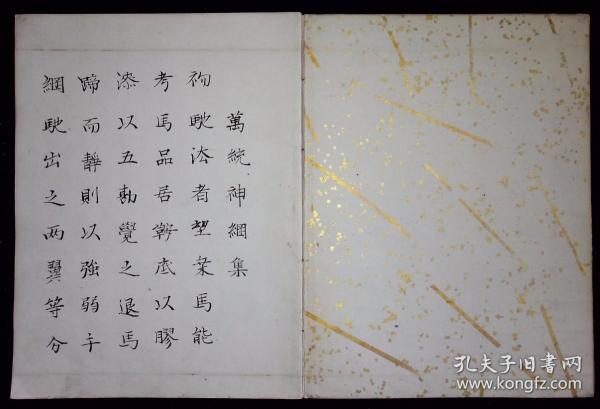 萬統神綱集
初馳法者塹柔馬能
考馬品居鞍武以膠
漆以五動覺之退馬
蹄而靜則以強弱手
綱馳出之两翼等分
孔夫子旧書网
www.kongfz.com